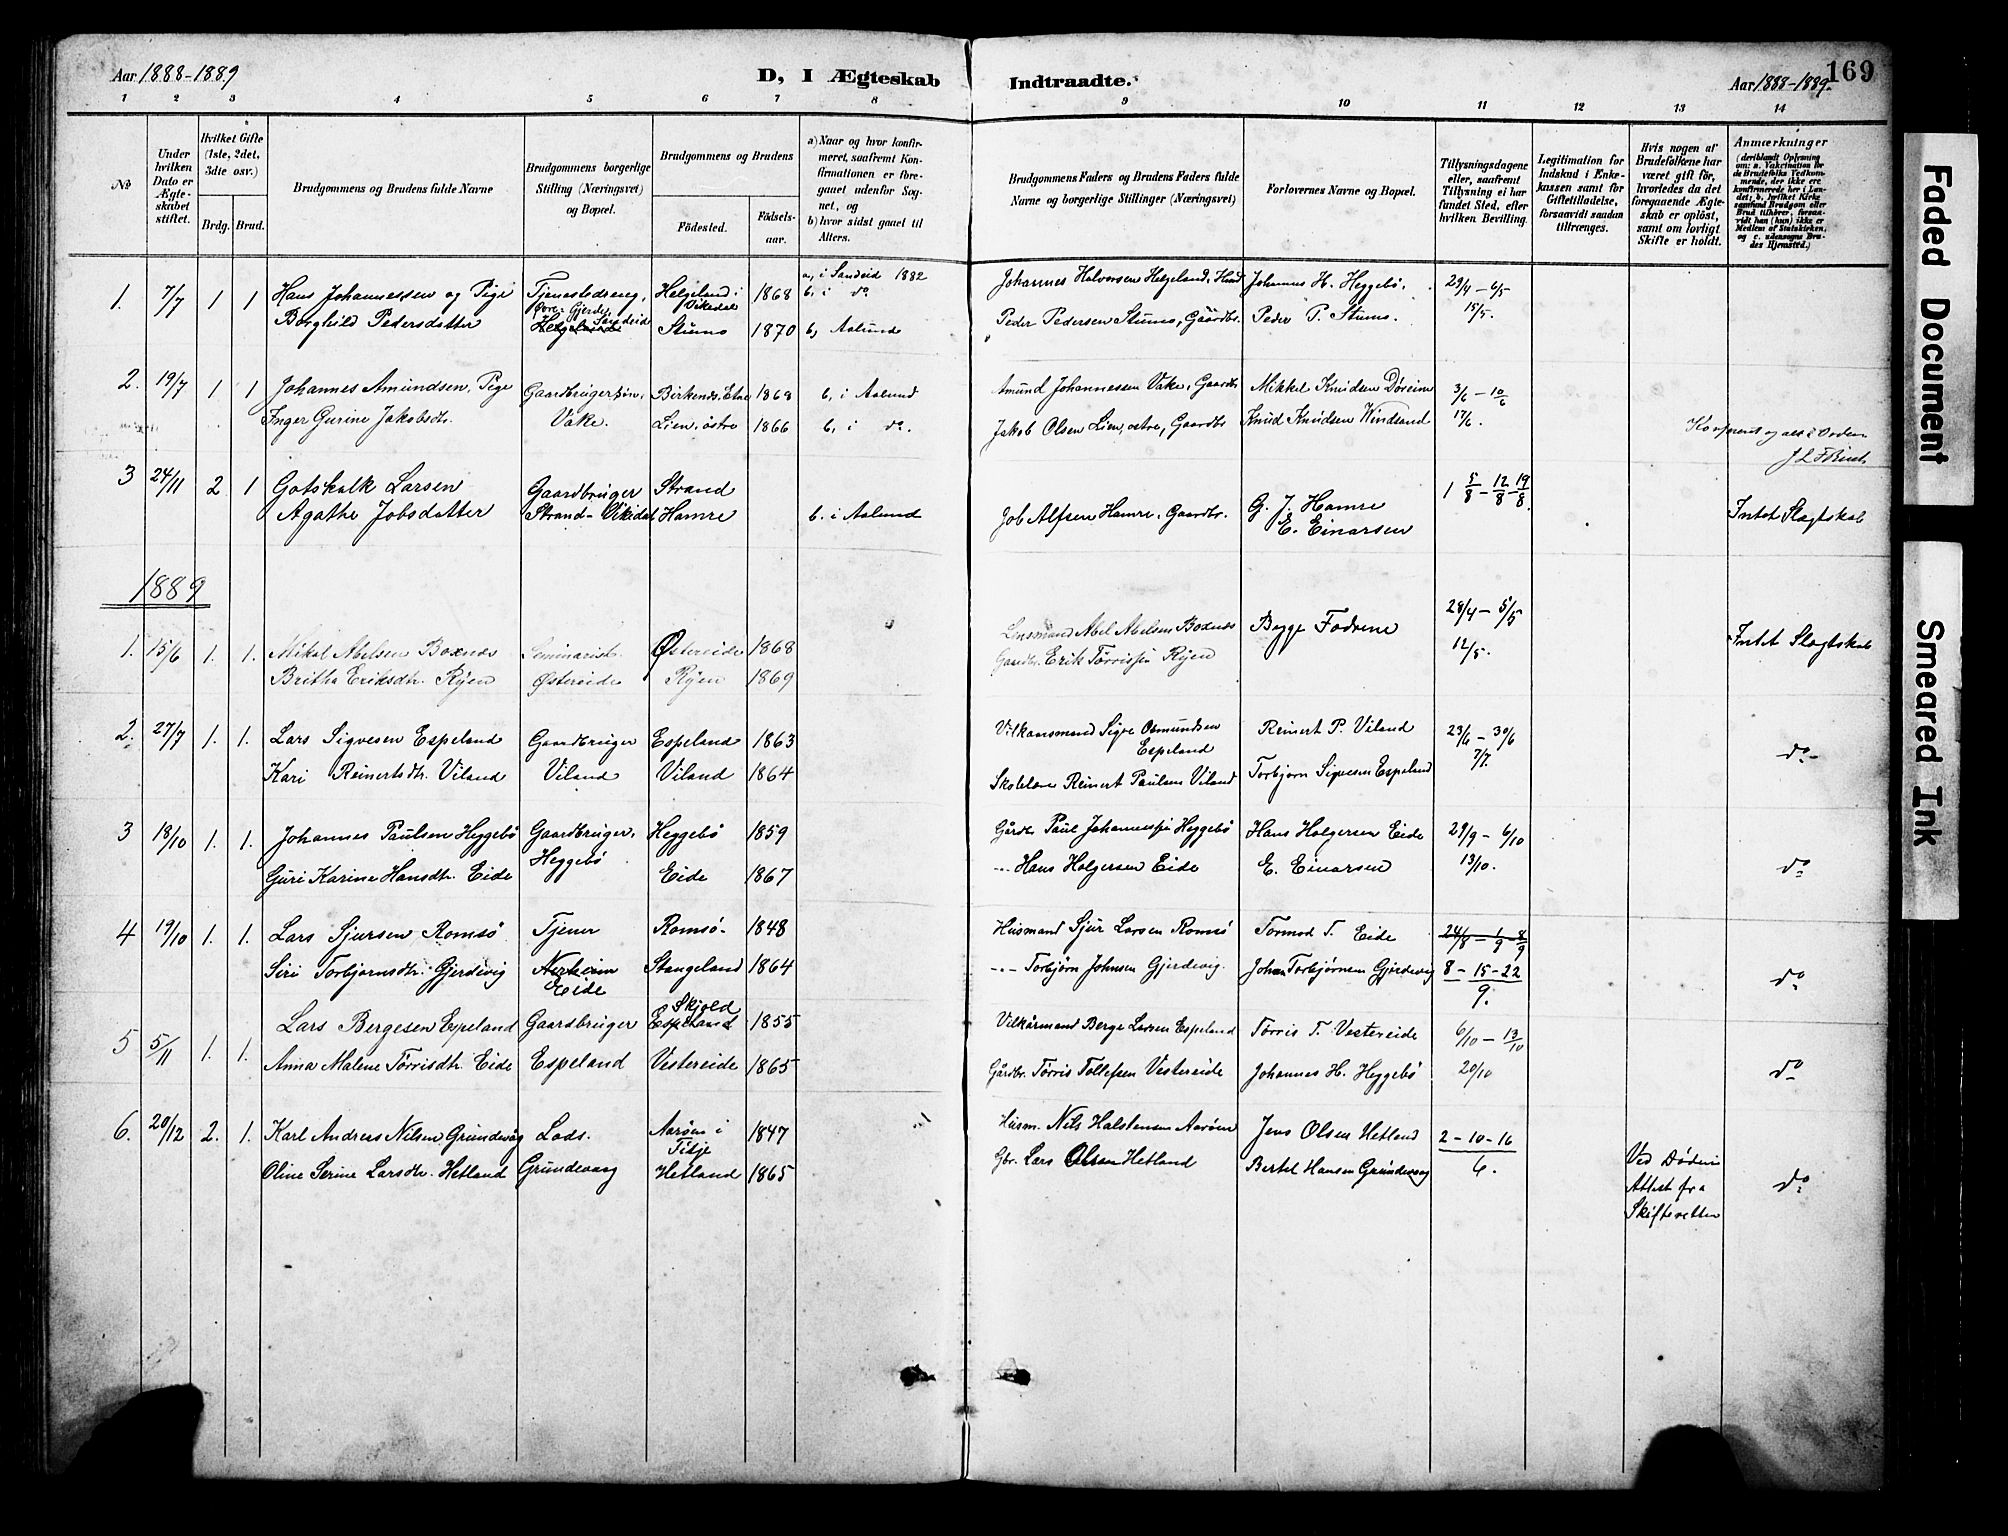 Aar 1888-1889
D, I Ægteskab Indtraadte.
Aar 1888-1889.
169
1 2 3 4 5 6 7 8 9 10 11 12 13 14
No
Under hvilken Dato er Ægteskabet stiftet.
Hvilket Gifte (1ste, 2det, 3die osv.)
Brdg. Brud.
Brudgommens og Brudens fulde Navne
Brudgommens borgerlige Stilling (Næringsvei) og Bopæl.
Brudgommens og Brudens
Födested.
Födselsaar.
a) Naar og hvor konfirmeret, saafremt Konfirmationen er foregaaet udenfor Sognet, og
b) hvor sidst gaaet til Alters.
Brudgommens Faders og Brudens Faders fulde Navne og borgerlige Stillinger (Næringsvei)
Forlovernes Navne og Bopæl.
Tillysningsdagene eller, saafremt Tillysning ei har fundet Sted, efter hvilken Bevilling.
Legitimation for Indskud i Enkekassen samt for Giftetilladelse, forsaavidt saadan tiltrænges.
Hvis nogen af Brudefolkene har været gift før, hvorledes da det foregaaende Ægteskab er oplöst, samt om lovligt Skifte er holdt.
Anmærkninger
(deriblandt Oplysning om: a. Vakcination for de Brudefolks Vedkommende, der ikke ere konfirmerede her i Landet; b. hvilket Kirkesamfund Brudgom eller Brud tilhörer, forsaavidt han (hun) ikke er Medlem af Statskirken, og c. udensogns Brudes Hjemsted.)
1. 7/7 1 1 Hans Johannessen og Pige Tjenestedreng, Helgeland i Vikedal 1868 a, i Sandeid 1882 b, i do Johannes Halvorsen Helgeland, Johannes H. Heggebö. 29/4 - 6/5
Borghild Pedersdatter Øvre-Gjerde, Sandeid Stumo 1870 b, Aalund Peder Pedersen Stumo, Gaardbr. Peder P. Stumo. 15/5.
2. 19/7 1 1 Johannes Amundsen, Pige Gaardbrugersön, Birkenes, Etne 1868 b, i Aalund Amund Johannessen Vake, Gaardbr. Mikkel Knudsen 3/6 - 10/6
Inger Gurine Jakobsdtr. Vake. Lien, östre 1866 b, i do. Jakob Olsen Lien, östre, Gaardbr. Knud Knudsen Windsand 17/6.
3 24/11 2 1 Gotskalk Larsen Gaardbruger Strand 1 5/8 - 12/8 - 19/8
Agathe Jobsdatter Strand - Vikedal Hamre b. i Aalund Job Alfsen Hamre, Gaardbr. G. J. Hamre E. Einarsen Intet Slagtskab
1889
1. 15/6 1. 1. Mikal Abelsen Boxnes Seminarist. Østereide 1868 Lensmand Abel Abelsen Boxnes Begge Fædrene 28/4 - 5/5 Intet Slagtskab
Britha Eriksdtr. Ryen Østereide Ryen 1869 Gaardbr. Erik Törrissen Ryen 12/5.
2. 27/7 1. 1. Lars Sigvesen Espeland Gaardbruger Espeland 1863 Vilkaarsmand Sigve Osmundsen Espeland Reinert P. Viland 23/6 - 30/6
Kari Reinertsdtr. Viland Viland Viland 1864 Skolelærer Reinert Paulsen Viland Torbjørn Sigvesen Espeland 7/7. do -
3 18/10 1. 1. Johannes Paulsen Heggebö Gaardbruger, Heggebö 1859 Gårdbr. Paul Johannessen Heggebö Hans Holgersen Eide 29/9 - 6/10
Guri Karine Hansdtr. Eide Heggebö Eide 1867 --- Hans Holgersen Eide E. Einarsen 13/10. do
4 19/10 1. 1. Lars Sjursen Romsö Tjener Romsö- 1848 Husmand Sjur Larsen Romsö Tormod T. Eide 24/8 - 1/9 - 8/9
Siri Torbjørnsdtr. Gjerdevig Nerheim Eide Stangeland Skjold 1864 --- Torbjørn Johnsen Gjerdevig. Johan Torbjørnsen Gjerdevig 8 - 15 - 22 / 9. do
5 5/11 1. 1. Lars Bergesen Espeland Gaardbruger Espeland 1855 Vilkårmand Berge Larsen Espeland Törris T. Vestereide 6/10 - 13/10
Anna Malene Törrisdtr. Eide Espeland Vestereide 1865 Gårdbr. Törris Tollefsen Vestereide Johannes H. Heggebö 20/10 do
6. 20/12 2. 1. Karl Andreas Nilsen Grundevåg Lods. Aarøen i 1847 Husm. Nils Halstensen Aarøen Jens Olsen Hetland 2 - 10 - 16 / 6.
Oline Serine Larsdtr. Hetland Grundevaag Hetland 1865 Gbr. Lars Olsen Hetland Bertel Hansen Grundevåg Ved Döden Attest fra Skifteretten do
Faded Document
Smeared Ink